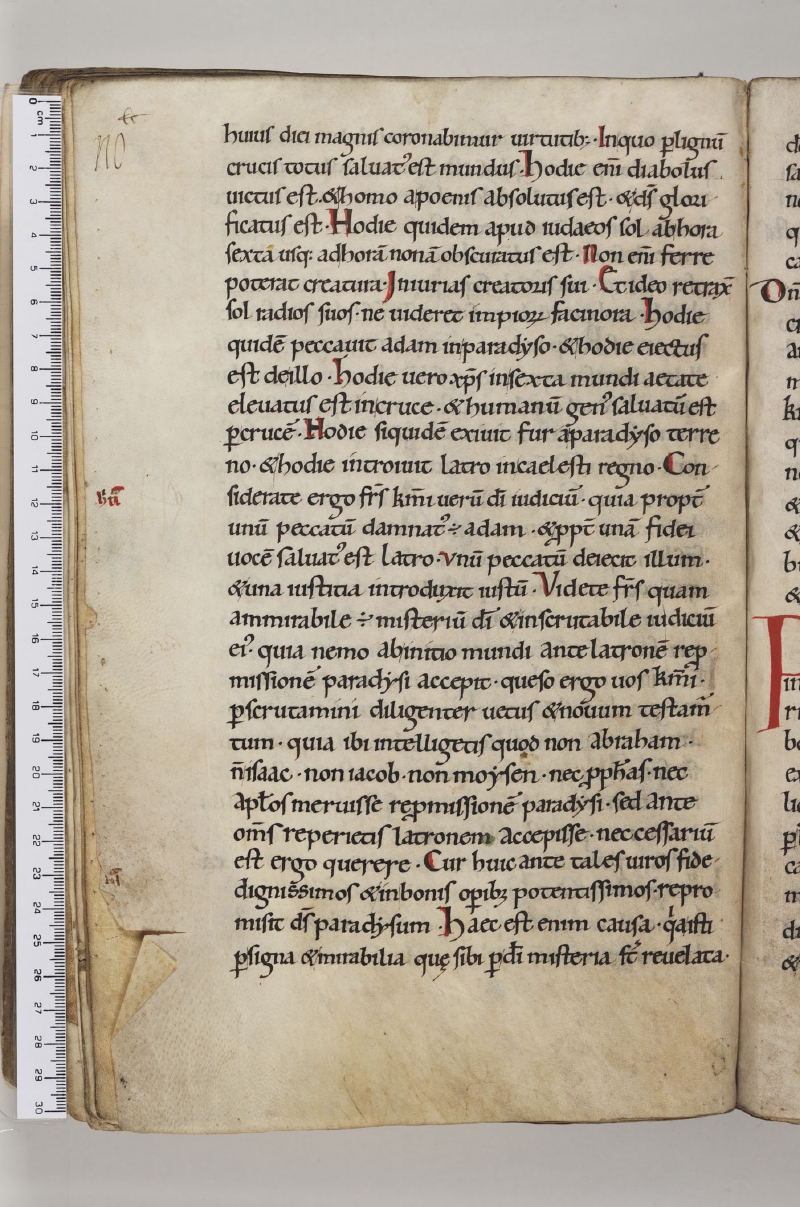 huius diei magnis coronabimur uirtutib; · Inquo ꝑlignū
crucis totus saluat᾽ est mundus · Hodie enī diabolus
uictus est · & homo apoenis absolutus est · & ds̄ glori
ficatus est · Hodie quidem apud iudaeos sol abhora
sextā usq; adhorā nonā obscuratus est · Non enī ferre
poterat creatura · Iniurias creatoris sui · Et ideo retrax̄
sol radios suos · ne uideret impioꝝ facinora · Hodie
quidē peccauit adam inparadyso · & hodie eiectus
est deillo · Hodie uero xp̄s insexta mundi aetate
eleuatus est incruce · & humanū gen᾽ saluatū est
ꝑcrucē · Hodie siquidē exiuit fur aparadyso terre
no · & hodie introiuit latro incaelesti regno · Con
siderate ergo fr̄s km̄i uerū dī iudiciū · quia propt̄
unū peccatū damnat᾽ ÷ adam · & ꝓpt̄ unā fidei
uocē saluat᾽ est latro · Vnū peccatū deiecit illum ·
& una iustitia introduxit iustū · Videte fr̄s quam
ammirabile ÷ misteriū dī & inscrutabile iudiciū
ei᾽ · quia nemo abinitio mundi ante latronē rep
missionē paradysi accepit · queso ergo uos km̄i ·
ꝑscrutamini diligenter uetus & nouum testam̄
tum · quia ibi intelligetis quod non abraham ·
n̄ isaac · non iacob · non moysen · nec ꝓphas · nec
aptos meruisse repmissionē paradysi · sed ante
om̄s reperietis latronem accepisse · neccessariū
est ergo querere · Cur huic ante tales uiros fide
dignissimos & inbonis opib; potentissimos · repro
misit ds̄ paradysum · Haec est enim causa · qa isti
ꝑsigna & mirabilia quę sibi ꝑdī misteria st̄ reuelata ·